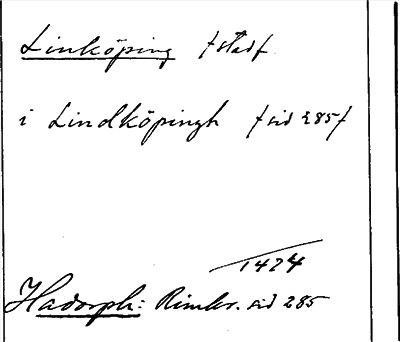 Linköping /stad/
i Lindköpingh /sid 285/
1424
Hadorph: Rimkr. sid 285